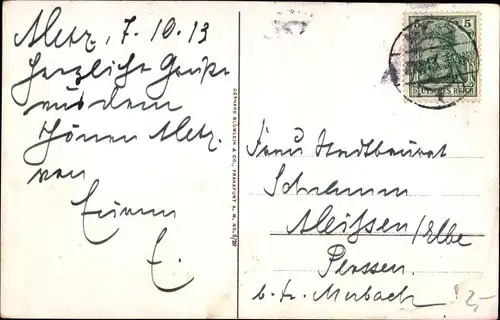 Metz, 7.10.13
Herzliche Grüße
aus dem
schönen Metz.
von
Eurem
E.
GERHARD BLÜMLEIN & CO., FRANKFURT A. M. NO.
5 5
DEUTSCHES REICH
Frau Stadtbaurat
Schramm
Meissen/Elbe